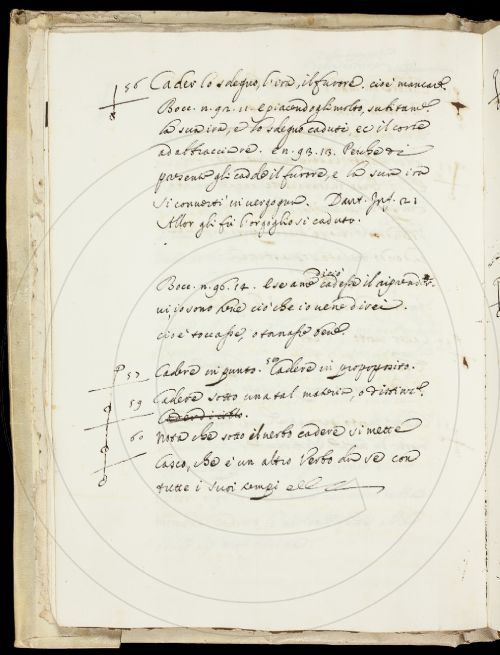 56 Cader lo sdegno, l'ira, il furore. cioè mancare.
Bocc. n. 92. 11. e piacendogli molto, subitam.e
la sua ira, e lo sdegno caduti, ec il corse
ad abbracciare. e n. 93. 13. Perché di
presente gli cadde il furore, e la sua ira
si convertì in vergogna. Dant. Inf. 21
Allor gli fù l'orgoglio si caduto.
Bocc. n. 96. 14. e se a me di ciò cadesse il riprender-
vi, io sono bene ciò che io ve ne direi.
cioè toccasse, o stasse bene.
57 Cadere in punto. 58 Cadere in proposito.
59 Cadere sotto una tal materia, o distinz.e
60 Nota che sotto il verbo cadere si mette
Casco, che è un altro Verbo da sè con
tutte i suoi tempi